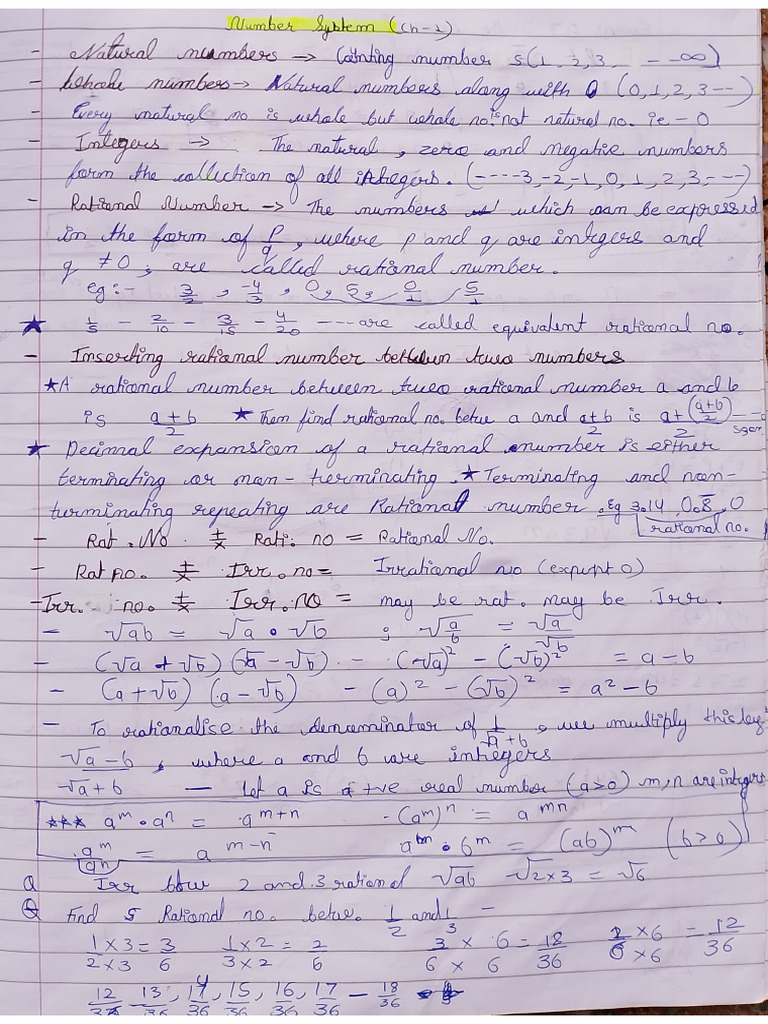 Number System (Ch-1)
- Natural numbers → Counting numbers (1, 2, 3, - - ∞)
- Whole numbers → Natural numbers along with 0 (0, 1, 2, 3 --)
- Every natural no is whole but whole no. is not natural no. ie - 0
- Integers → The natural, zero and negative numbers
form the collection of all integers. (----3, -2, -1, 0, 1, 2, 3, - --)
- Rational Number → The numbers which can be expressed
in the form of p/q, where p and q are integers and
q ≠ 0, are called rational number.
eg :- 3/2, -4/3, 0, 5, 0/1, 5/1
★ 1/5 - 2/10 - 3/15 - 4/20 ---- are called equivalent rational no.
- Inserting rational number between two numbers
★ A rational number between two rational number a and b
is a+b/2 ★ Then find rational no. betw a and a+b/2 is a+(a+b/2)/2 ---
★ Decimal expansion of a rational number is either
terminating or non-terminating. ★ Terminating and non-
turminating repeating are Rational number. Eg 3.14, 0.8̅, 0
rational no.
- Rat. No ±× Rati. no = Rational No.
- Rat no. ±× Irr. no = Irrational no (expept 0)
- Irr. no. ±× Irr. NO = may be rat. may be Irr.
- √ab = √a • √b ; √a/b = √a/√b
- (√a + √b) (√a - √b) - (√a)² - (√b)² = a - b
- (a + √b) (a - √b) - (a)² - (√b)² = a² - b
- To rationalise the denominator of 1/√a + b, we multiply this by
√a - b/√a + b, where a and b are integers
- Let a is a +ve real number (a>0) m, n are integers
*** aᵐ • aⁿ = aᵐ⁺ⁿ - (aᵐ)ⁿ = aᵐⁿ
aᵐ/aⁿ = aᵐ⁻ⁿ aᵐ • bᵐ = (ab)ᵐ (b > 0)
Q Irr btw 2 and 3 rational √ab √2×3 = √6
Q Find 5 Rational no. betw. 1/2 and 1/3 -
1×3/2×3 = 3/6 1×2/3×2 = 2/6 3/6 × 6/6 = 18/36 2×6/6×6 = 12/36
12/36 - 13/36, 14/36, 15/36, 16/36, 17/36 - 18/36